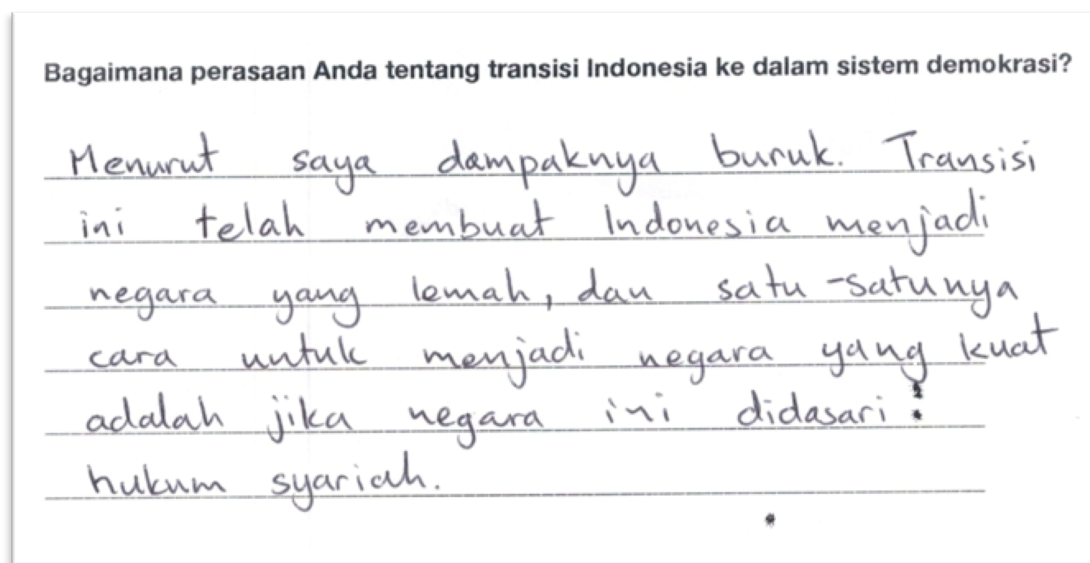 Bagaimana perasaan Anda tentang transisi Indonesia ke dalam sistem demokrasi?
Menurut saya dampaknya buruk. Transisi
ini telah membuat Indonesia menjadi
negara yang lemah, dan satu-satunya
cara untuk menjadi negara yang kuat
adalah jika negara ini didasari
hukum syariah.